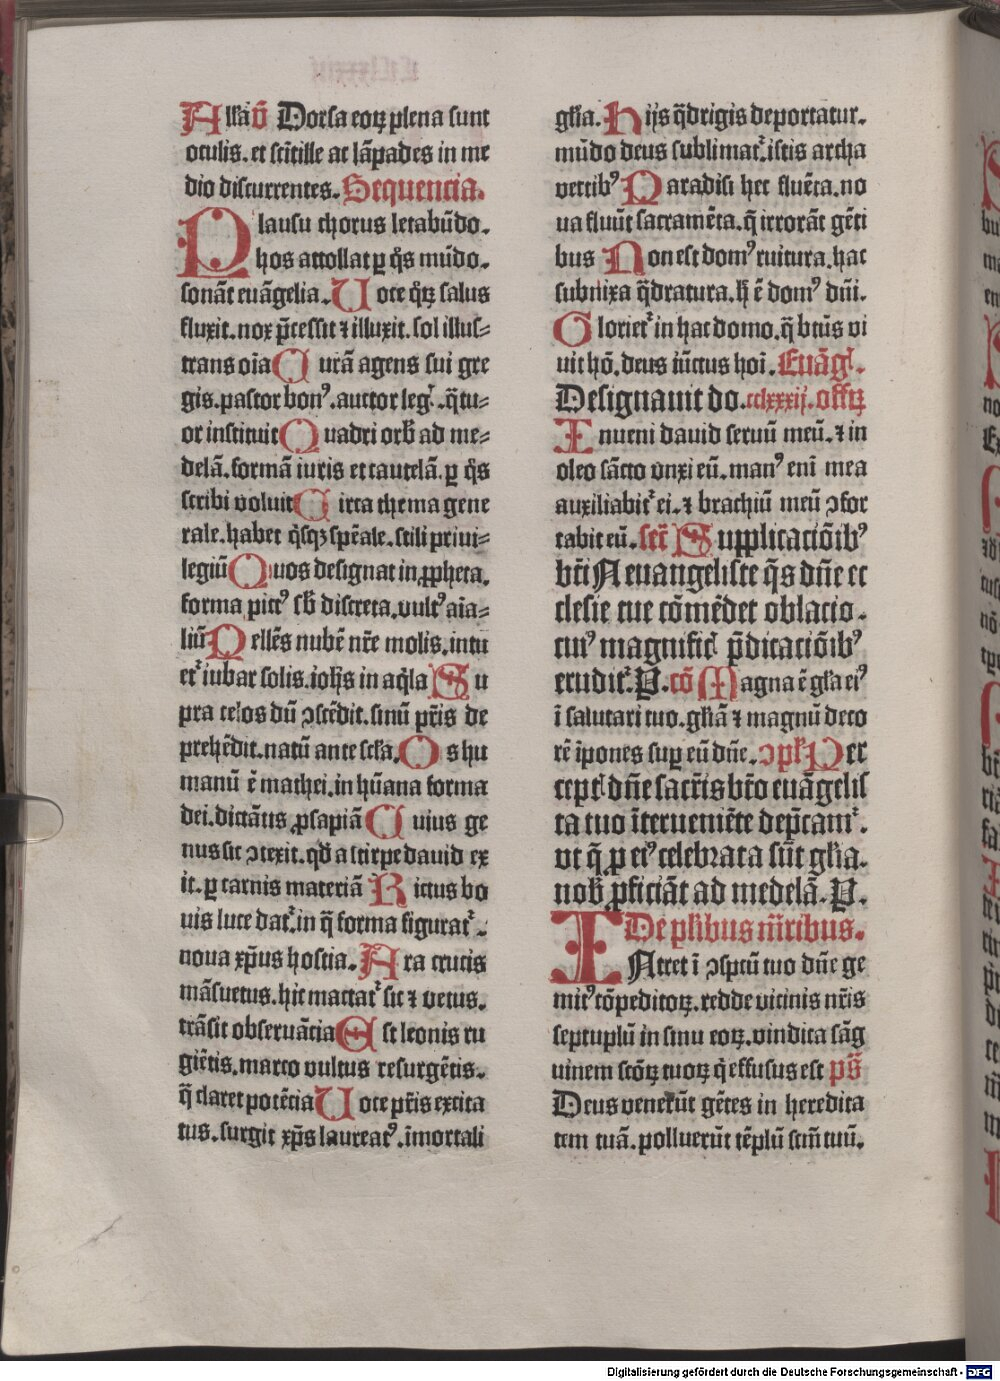 Alľa ṽ Dorsa eoꝝ plena sunt
oculis. et scītille ac lāpades in me
dio discurrentes. Sequencia.
Plausu chorus letabūdo.
hos attollat ꝑ q̊s mūdo.
sonāt euāgelia. Uoce q̊ꝝ salus
fluxit. nox p̄cessit ⁊ illuxit. sol illus⸗
trans oīa Curā agens sui gre
gis. pastor bonꝰ. auctor leg̃. q̄tu⸗
or instituit Quadri orb̄ ad me⸗
delā. formā iuris et cautelā. ꝑ q̊s
scribi voluit Circa thema gene
rale. habet q̊sqꝫ spēale. stili priui⸗
legiū Quos designat in ꝓpheta.
forma pictꝰ sb̄ discreta. vultꝰ aīa⸗
liū Pellēs nubē nr̄e molis. intu
etᷣ iubar solis. ioh̄s in aq̇la Su
pra celos dū ꝯscēdit. sinū pr̄is de
prehēdit. natū ante scľa. Os hu
manū ē mathei. in hūana forma
dei. dictātis ꝓsapiā Cuius ge
nus sic ꝯtexit. qd̄ a stirpe dauid ex
it. ꝑ carnis materiā Rictus bo
uis luce datᷣ. in q̄ forma figuratᷣ.
noua xp̄us hostia. Ara crucis
māsuetus. hic mactatᷣ sic ⁊ vetus.
trāsit obseruācia Est leonis ru
giētis. marco vultus resurgētis.
q̄ claret potēcia Uoce pr̄is excita
tus. surgit xp̄s laureatꝰ. īmortali
gľia. Hijs q̄drigis deportatur.
mūdo deus sublimatᷣ. istis archa
vectibꝰ Paradisi hec fluēta. no
ua fluūt sacramēta. q̄ irrorāt gēti
bus Non est domꝰ ruitura. hac
subnixa q̄dratura. h̄ ē domꝰ dn̄i.
Glorietᷣ in hac domo. q̄ btūs vi
uit hō. deus iūctus hoī. Euāgľ.
Designauit do. cclxxxij. offꝝ
Inueni dauid seruū meū. ⁊ in
oleo sācto vnxi eū. manꝰ enī mea
auxiliabitᷣ ei. ⁊ brachiū meū ꝯfor
tabit eū. secr̄ Supplicaciōibꝰ
bt̄i N euangeliste q̄s dn̄e ec
clesie tue cōmēdet oblacio.
cuiꝰ magnificľ p̄dicaciōibꝰ
eruditᷣ. P. cō Magna ē gľa eiꝰ
ī salutari tuo. gľiā ⁊ magnū deco
rē īpones suꝑ eū dn̄e. ꝯpľ Per
ceptľ dn̄e sacr̄is bt̄o euāgelis
ta tuo īterueniēte dep̄camᷣ.
vt q̄ ꝑ eiꝰ celebrata sūt gľia.
nob̄ ꝓficiāt ad medelā. P.
De plibus mr̄ibus.
INtret ī ꝯspectū tuo dn̄e ge
mitꝰ cōpeditoꝝ. redde vicinis nr̄is
septuplū in sinu eoꝝ. vindica sāg
uinem scōꝝ tuoꝝ q̇ effusus est pš
Deus venerūt gētes in heredita
tem tuā. polluerūt tēplū scm̄ tuū.
Digitalisierung gefördert durch die Deutsche Forschungsgemeinschaft - DFG